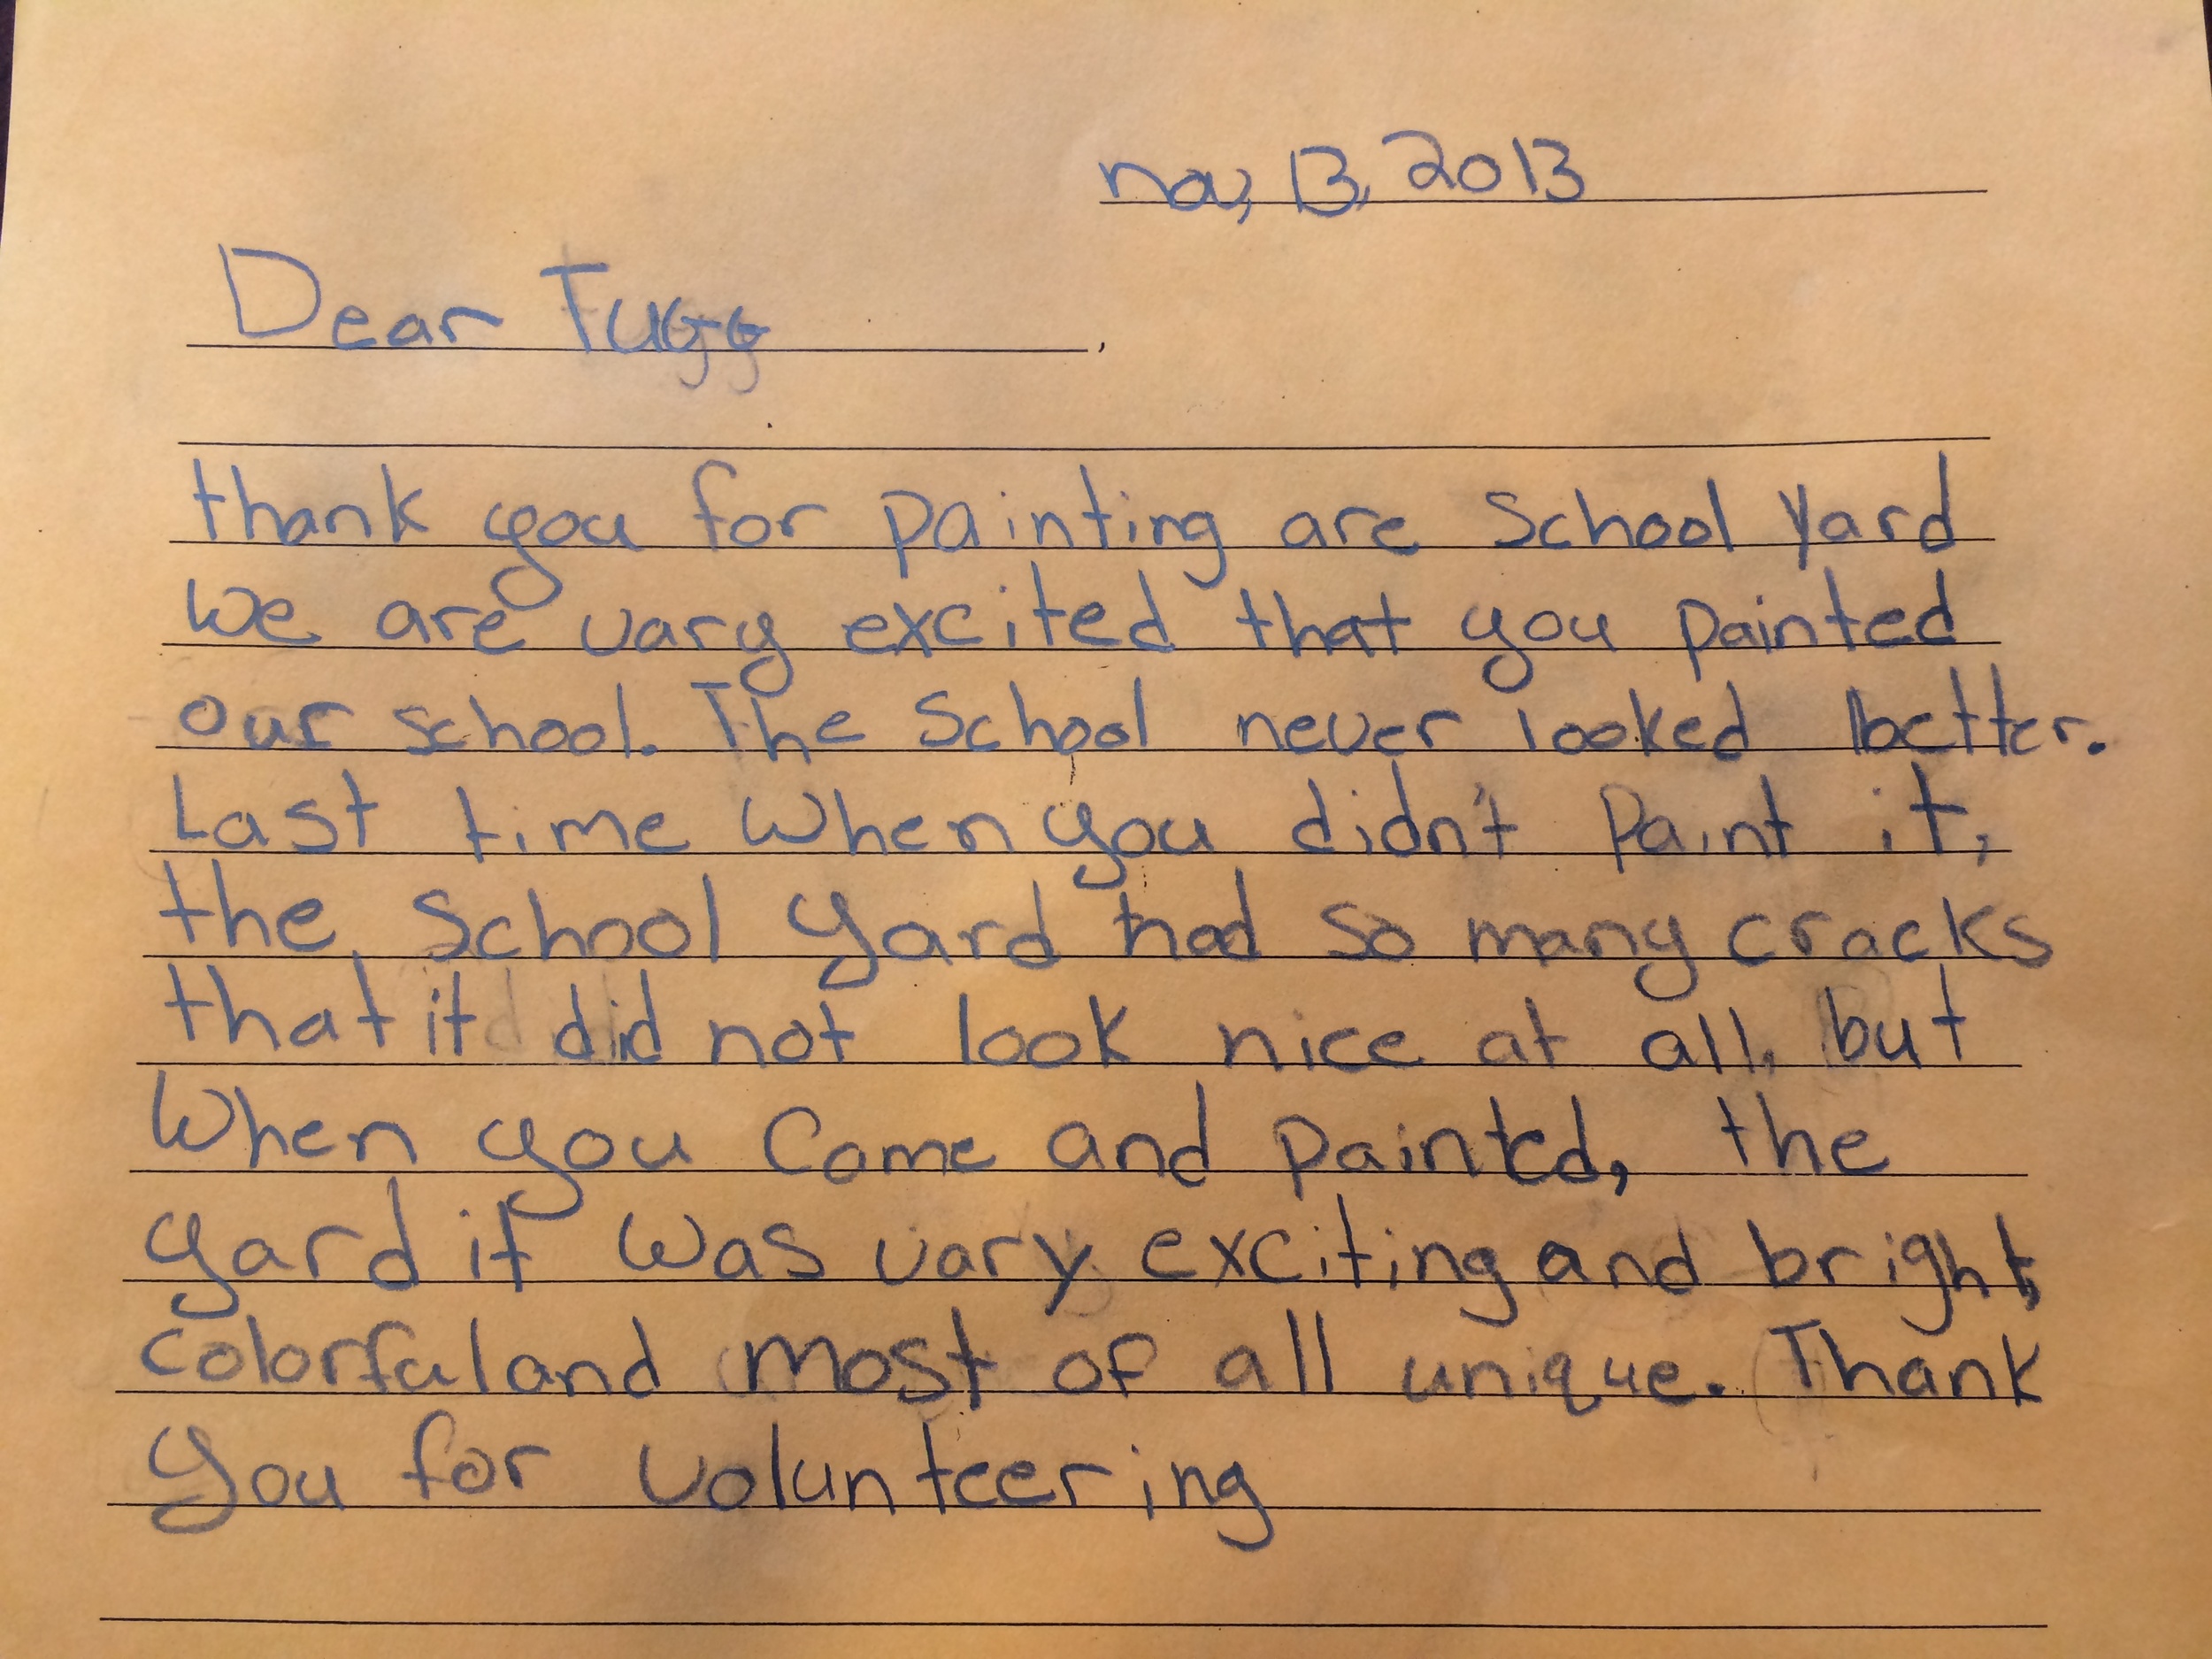 nov, 13, 2013
Dear Tugg,
thank you for painting are School yard
We are vary excited that you painted
our school. The School never looked better.
Last time When you didn't Paint it,
the School yard had so many cracks
that it did not look nice at all. but
When you Came and painted, the
yard it was vary exciting and bright,
colorful and most of all unique. Thank
you for volunteering